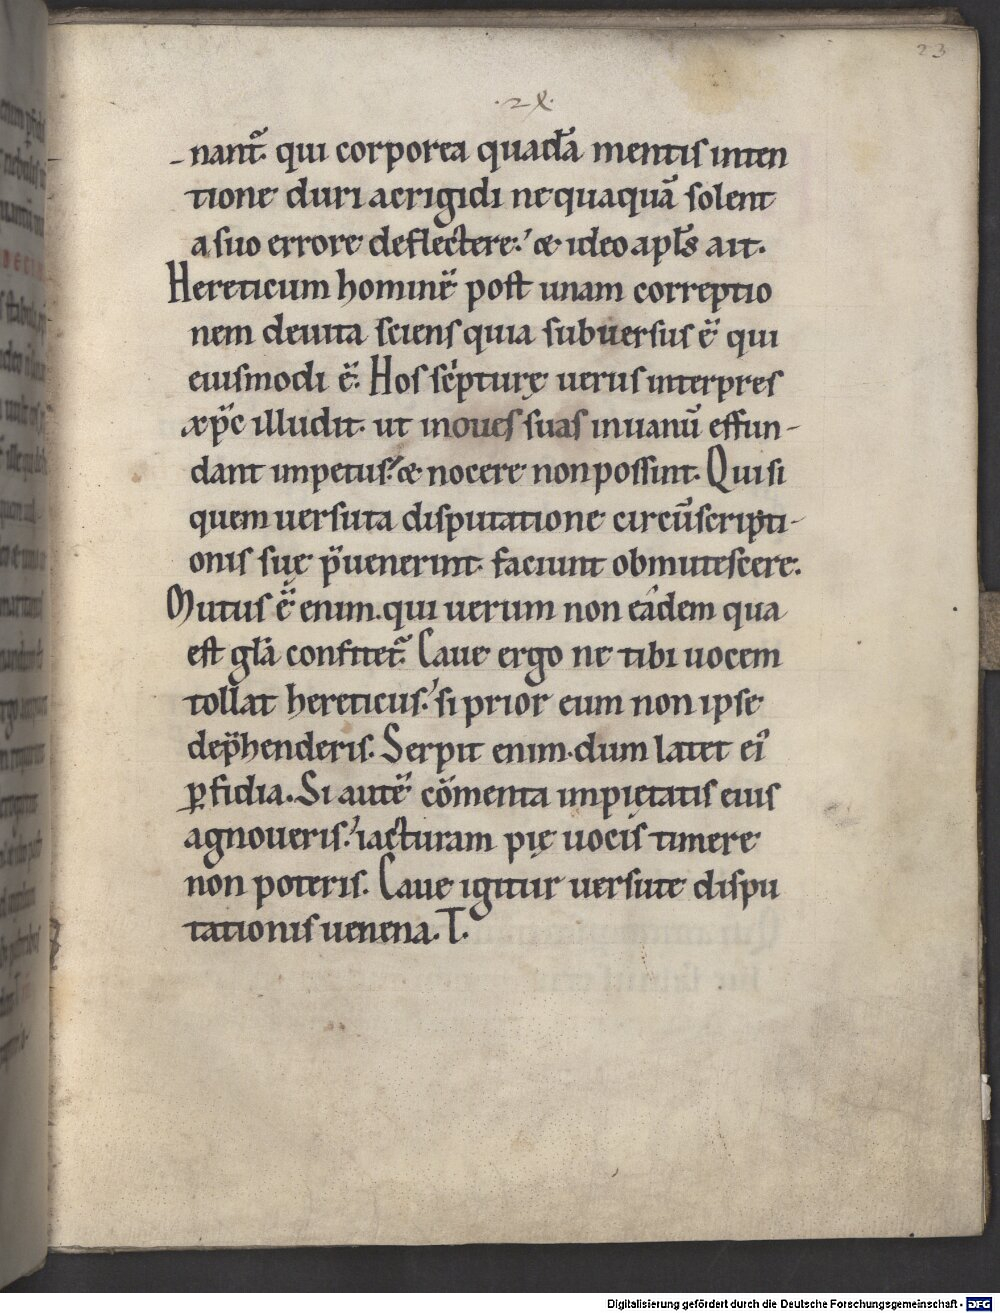 23
·24·
nant᷑. qui corporea quadā mentis inten
tione duri ac rigidi nequaquā solent
a suo errore deflectere. & ideo apl̅s ait.
Hereticum hominē post unam correptio
nem deuita sciens quia subuersus ē qui
eiusmodi ē. Hos sc͛pturę uerus interpres
xp̄c illudit. ut in oues suas in uanū effun-
dant impetus. & nocere non possint. Qui si
quem uersuta disputatione circūscripti-
onis suę p̄uenerint. faciunt obmutescere.
Mutus ē enim. qui uerum non eādem qua
est gl̅a confitet᷑. Caue ergo ne tibi uocem
tollat hereticus. si prior eum non ipse
dep̄henderis. Serpit enim. dum latet eiꝰ
ꝑfidia. Si autē cōmenta impiętatis eius
agnoueris. iacturam pię uocis timere
non poteris. Caue igitur uersute dispu
tationis uenena. T.
Digitalisierung gefördert durch die Deutsche Forschungsgemeinschaft - DFG